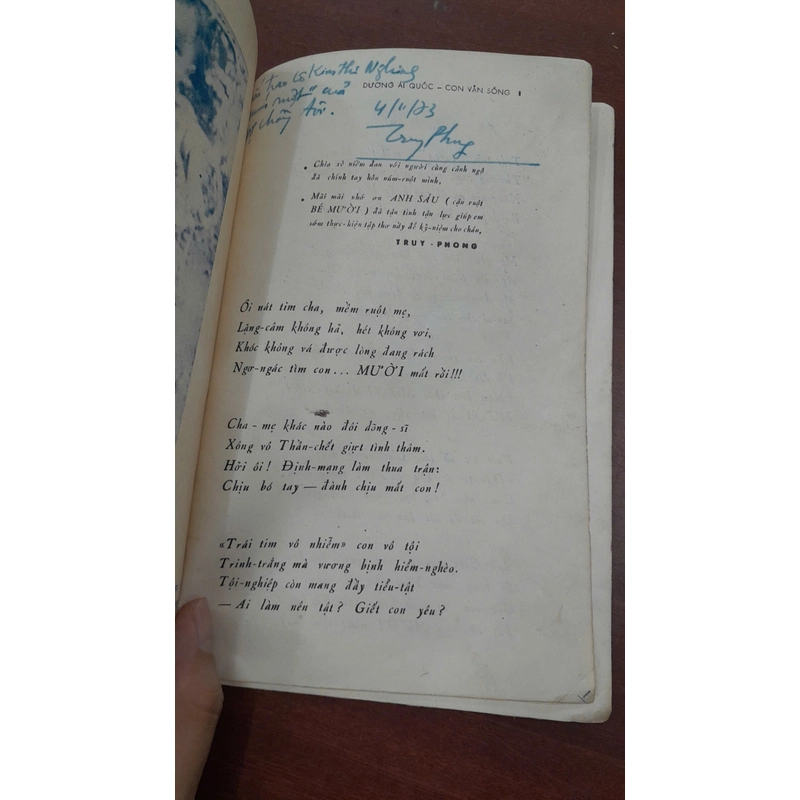 trao cô Kim Thi Nghiêng
của
chồng tôi.
4/11/73
Truy Phong
DƯƠNG ÁI QUỐC – CON VẪN SỐNG 1
• Chia sẻ niềm đau với người cùng cảnh ngộ
đã chính tay hôn núm-ruột mình.
• Mãi mãi nhớ ơn ANH SÁU ( cậu ruột
BÉ MƯỜI ) đã tận tình tận lực giúp em
sớm thực-hiện tập thơ này để kỷ-niệm cho cháu.
TRUY - PHONG
Ôi nát tim cha, mềm ruột mẹ,
Lặng-câm không hả, hét không vơi,
Khóc không vá được lòng đang rách
Ngơ-ngác tìm con... MƯỜI mất rồi!!!
Cha - mẹ khác nào đôi dõng - sĩ
Xông vô Thần-chết giựt tình thâm.
Hỡi ôi ! Định-mạng làm thua trận:
Chịu bó tay — đành chịu mất con !
«Trái tim vô nhiễm» con vô tội
Trinh-trắng mà vương bịnh hiểm-nghèo.
Tội-nghiệp còn mang đầy tiểu-tật
— Ai làm nên tật ? Giết con yêu ?